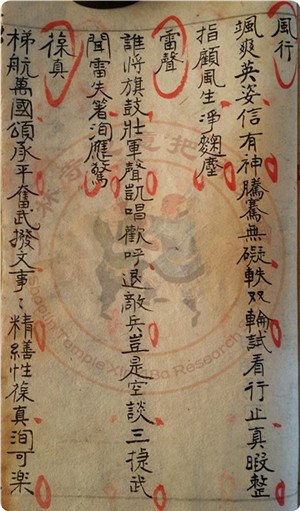 風行
颯爽英姿信有神騰騫無礙軼双輪試看行止真暇整
指顧風生淨麴塵
雷聲
誰將旗鼓壯軍聲凱唱歡呼退敵兵豈是空談三捷武
聞雷失箸洵應驚
葆真
梯航萬國頌承平奮武揆文事〻精繕性葆真洵可楽